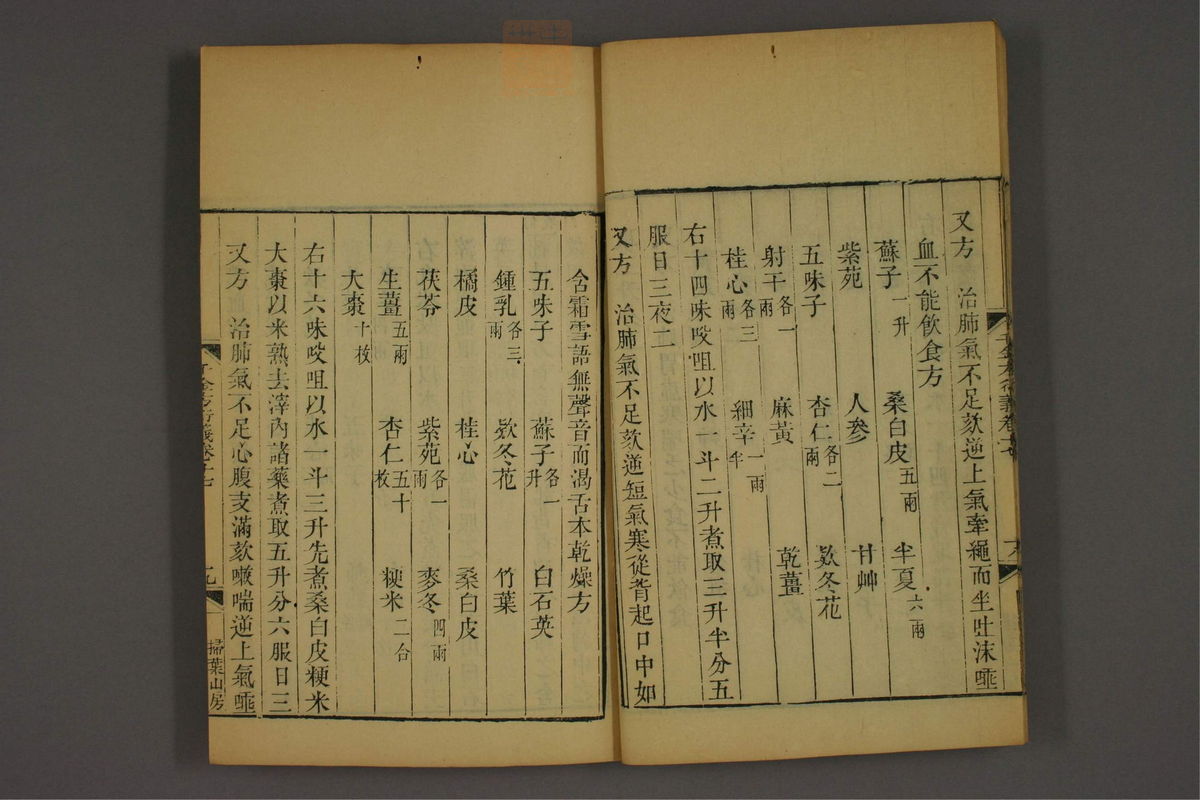 又方　治肺氣不足欬逆上氣牽繩而坐吐沫唾
血不能飲食方
蘇子一升　桑白皮五兩　半夏六兩
紫苑　人參　甘艸
五味子　杏仁各二兩　欵冬花
射干各一兩　麻黃　乾薑
桂心各三兩　細辛一兩半
右十四味㕮咀以水一斗二升煮取三升半分五
服日三夜二
又方　治肺氣不足欬逆短氣寒從背起口中如
含霜雪語無聲音而渴舌本乾燥方
五味子　蘇子各一升　白石英
鍾乳各三兩　欵冬花　竹葉
橘皮　桂心　桑白皮
茯苓　紫苑各一兩　麥冬四兩
生薑五兩　杏仁五十枚　粳米二合
大棗十枚
右十六味㕮咀以水一斗三升先煮桑白皮粳米
大棗以米熟去滓內諸藥煮取五升分六服日三
又方　治肺氣不足心腹支滿欬嗽喘逆上氣唾
千金方衍義卷十七
掃葉山房